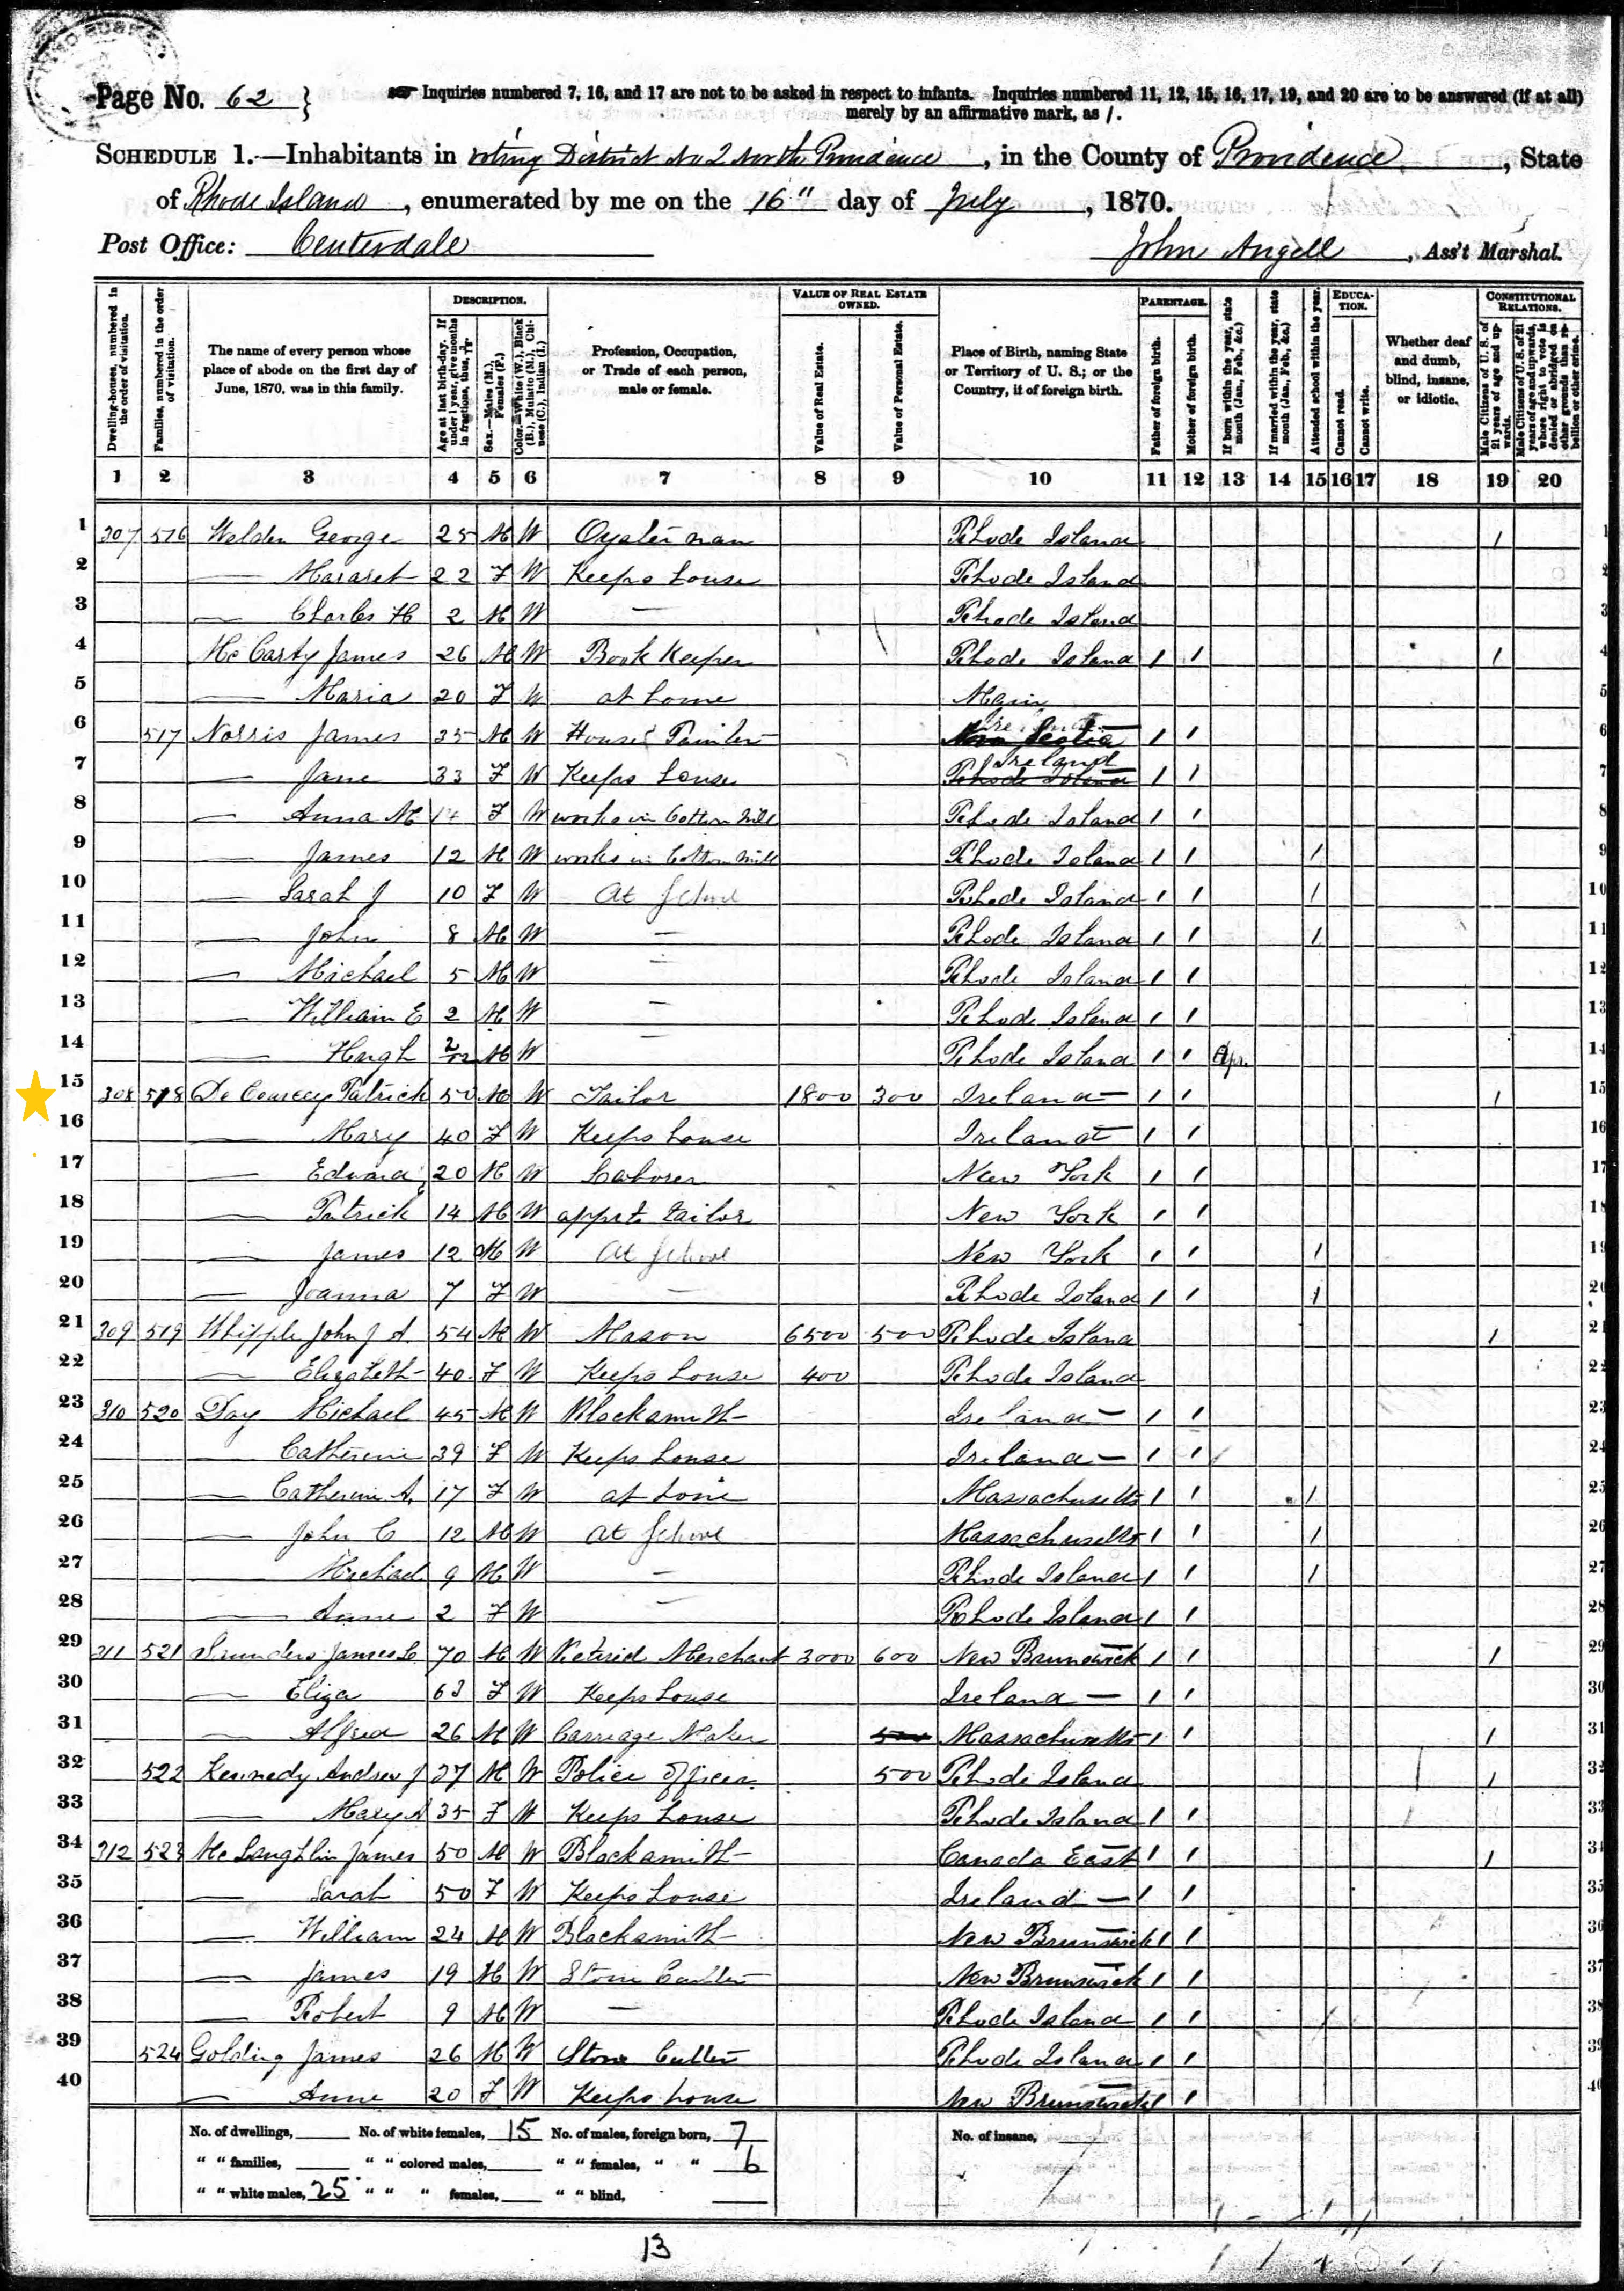 Page No. 62 }
Inquiries numbered 7, 16, and 17 are not to be asked in respect to infants. Inquiries numbered 11, 12, 15, 16, 17, 19, and 20 are to be answered (if at all)
merely by an affirmative mark, as /.
SCHEDULE 1.—Inhabitants in Voting District No 2 North Providence, in the County of Providence, State
of Rhode Island, enumerated by me on the 16" day of July, 1870.
Post Office: Centerdale John Angell, Ass't Marshal.
Dwelling-houses, numbered in the order of visitation.
Families, numbered in the order of visitation.
The name of every person whose place of abode on the first day of June, 1870, was in this family.
DESCRIPTION.
Age at last birth-day. If under 1 year, give months in fractions, thus,
Sex.—Males (M.), Females (F.)
Color.—White (W.), Black (B.), Mulatto (M.), Chinese (C.), Indian (I.)
Profession, Occupation, or Trade of each person, male or female.
VALUE OF REAL ESTATE OWNED.
Value of Real Estate.
Value of Personal Estate.
Place of Birth, naming State or Territory of U. S.; or the Country, if of foreign birth.
PARENTAGE.
Father of foreign birth.
Mother of foreign birth.
If born within the year, state month (Jan., Feb., &c.)
If married within the year, state month (Jan., Feb., &c.)
Attended school within the year.
EDUCATION.
Cannot read.
Cannot write.
Whether deaf and dumb, blind, insane, or idiotic.
CONSTITUTIONAL RELATIONS.
Male Citizens of U. S. of 21 years of age and upwards.
Male Citizens of U. S. of 21 years of age and upwards, whose right to vote is denied or abridged on other grounds than rebellion or other crime.
1 2 3 4 5 6 7 8 9 10 11 12 13 14 15 16 17 18 19 20
1 307 516 Welden George 25 M W Oyster man Rhode Island / 1
2 — Mararet 22 F W Keeps house Rhode Island 2
3 — Charles H 2 M W — Rhode Island 3
4 McCarty James 26 M W Book Keeper Rhode Island / / / 4
5 — Maria 20 F W at home Main 5
6 517 Norris James 35 M W House Painter Nova Scotia / / 6
7 — Jane 33 F W Keeps house Rhode Island Ireland / / 7
8 — Anna M 14 F W works in Cotton Mill Rhode Island / / 8
9 — James 12 M W works in Cotton Mill Rhode Island / / / 9
10 — Sarah J 10 F W At School Rhode Island / / / 10
11 — John 8 M W — Rhode Island / / / 11
12 — Michael 5 M W — Rhode Island / / 12
13 — William E 2 M W — Rhode Island / / 13
14 — Hugh 2/12 M W — Rhode Island / / Apr. 14
15 308 518 De Courcey Patrick 50 M W Tailor 1800 300 Ireland / / / 15
16 — Mary 40 F W Keeps house Ireland / / 16
17 — Edward 20 M W Laborer New York / / 17
18 — Patrick 14 M W appt. tailor New York / / 18
19 — James 12 M W At School New York / / / 19
20 — Joanna 7 F W — Rhode Island / / / 20
21 309 519 Whipple John J A. 54 M W Mason 6500 500 Rhode Island / 21
22 — Elizabeth 40 F W Keeps house 400 Rhode Island 22
23 310 520 Day Michael 45 M W Blacksmith Ireland / / 23
24 — Catherine 39 F W Keeps house Ireland / / 24
25 — Catherine A. 17 F W at home Massachusetts / / / 25
26 — John C 12 M W At School Massachusetts / / / 26
27 — Michael 9 M W — Rhode Island / / / 27
28 — Anne 2 F W — Rhode Island / / 28
29 311 521 Saunders James L. 70 M W Retired Merchant 3000 600 New Brunswick / / / 29
30 — Eliza 63 F W Keeps house Ireland / / 30
31 — Alfred 26 M W Carriage Maker 500 Massachusetts / / / 31
32 522 Kennedy Andrew J 37 M W Police Officer 500 Rhode Island / 32
33 — Mary A 35 F W Keeps house Rhode Island / / 33
34 312 523 McLaughlin James 50 M W Blacksmith Canada East / / / 34
35 — Sarah 50 F W Keeps house Ireland / / 35
36 — William 24 M W Blacksmith New Brunswick / / 36
37 — James 19 M W Stone Cutter New Brunswick / / 37
38 — Robert 9 M W — Rhode Island / / 38
39 524 Golding James 26 M W Stone Cutter Rhode Island / / 39
40 — Anne 20 F W Keeps house New Brunswick / / 40
No. of dwellings, No. of white females, 15 No. of males, foreign born, 7 No. of insane,
" " families, " " colored males, " " females, " " 6
" " white males, 25 " " " females, " " blind,
13